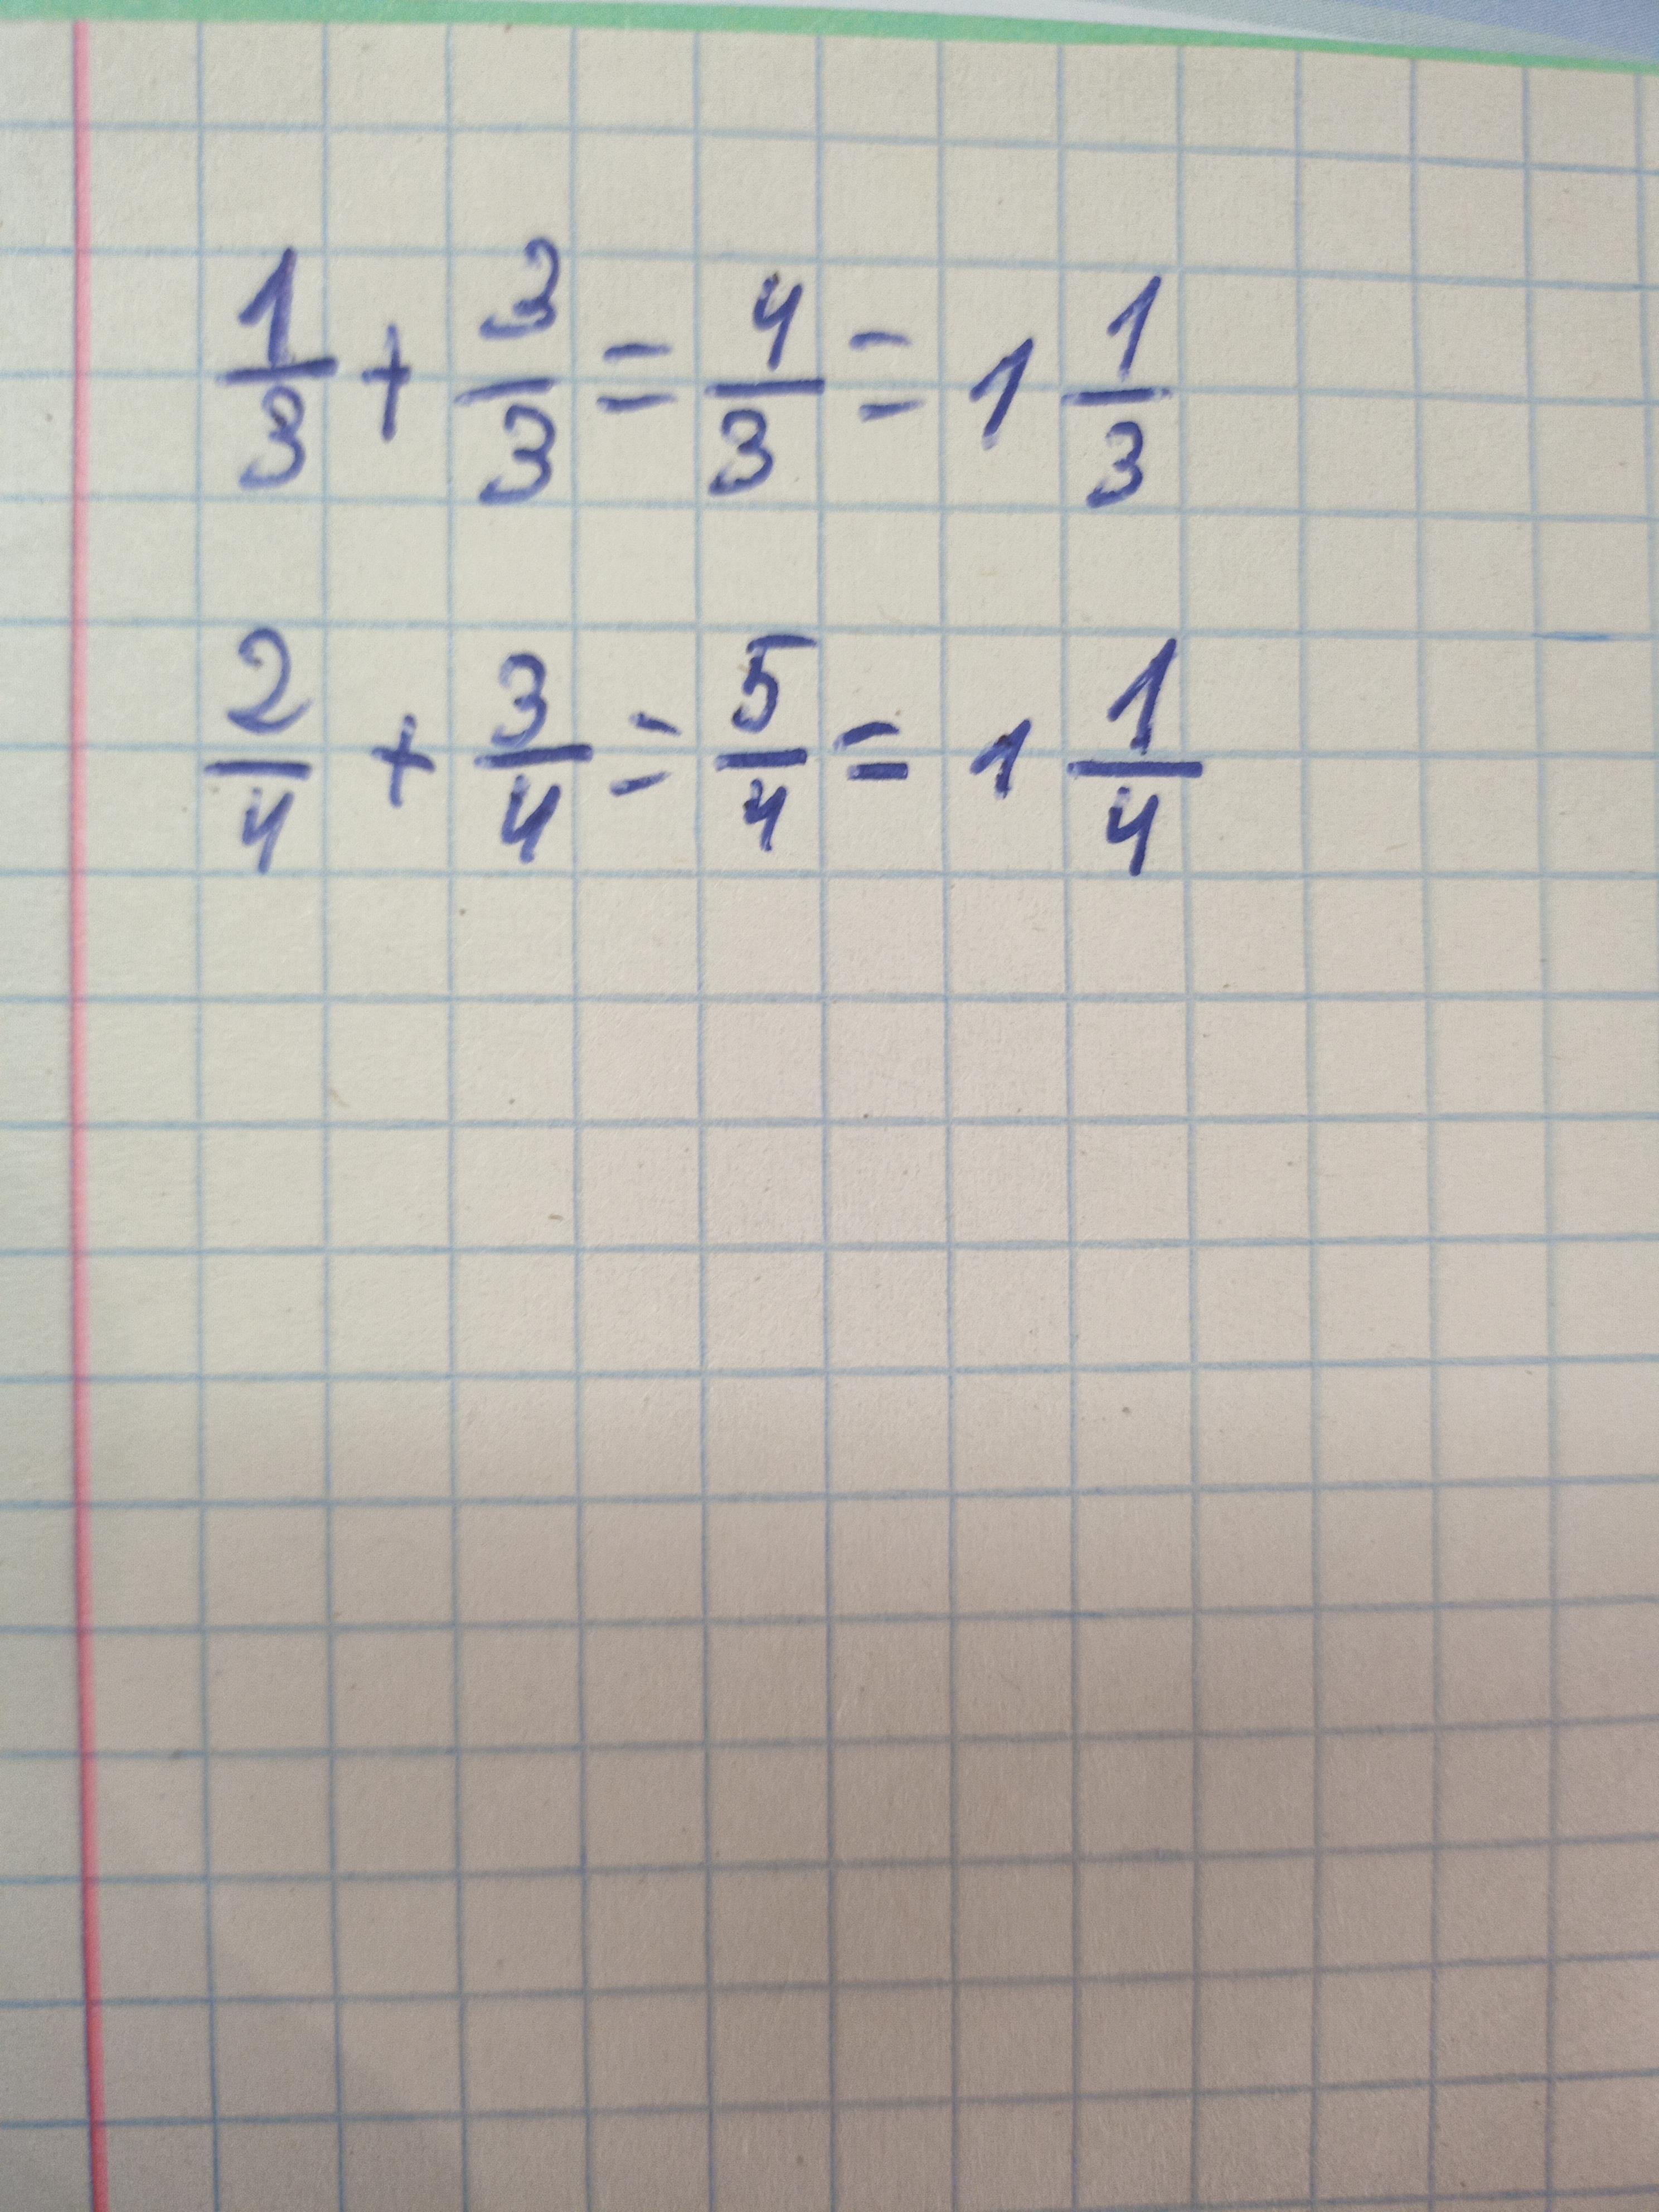 1/3 + 3/3 = 4/3 = 1 1/3
2/4 + 3/4 = 5/4 = 1 1/4